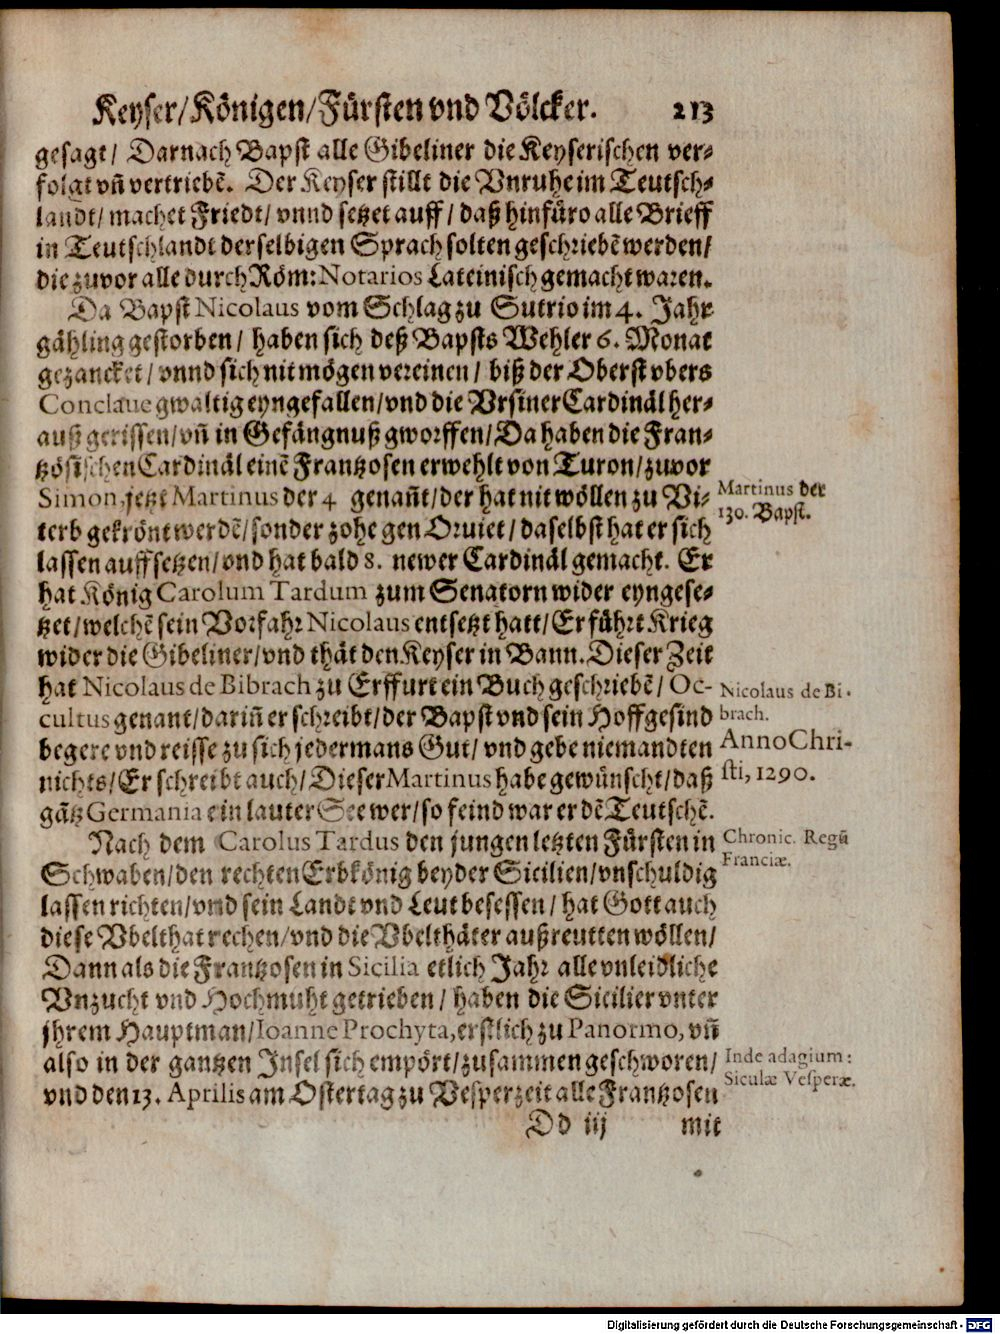 Keyser/Königen/Fürsten vnd Völcker. 213
gesagt/ Darnach Bapst alle Gibeliner die Keyserischen ver-
folgt vñ vertriebẽ. Der Keyser stillt die Vnruhe im Teutsch-
landt/ machet Friedt/ vnnd setzet auff/ daß hinfüro alle Brieff
in Teutschlandt derselbigen Sprach solten geschriebẽ werden/
die zuvor alle durch Röm: Notarios Lateinisch gemacht waren.
Da Bapst Nicolaus vom Schlag zu Sutrio im 4. Jahr
gähling gestorben/ haben sich deß Bapsts Wehler 6. Monat
gezancket/ vnnd sich nit mögen vereinen/ biß der Oberst vbers
Conclaue gwaltig eyngefallen/vnd die Vrsiner Cardinäl her-
auß gerissen/vñ in Gefängnuß gworffen/Da haben die Fran-
tzösischen Cardinäl einẽ Frantzosen erwehlt von Turon/zuvor
Simon, jetzt Martinus der 4 genañt/der hat nit wöllen zu Vi-
terb gekrönt werdẽ/sonder zohe gen Oruiet/daselbst hat er sich
lassen auffsetzen/vnd hat bald 8. newer Cardinäl gemacht. Er
hat König Carolum Tardum zum Senatorn wider eyngese-
tzet/welchẽ sein Vorfahr Nicolaus entsetzt hatt/Er führt Krieg
wider die Gibeliner/vnd thät den Keyser in Bann. Dieser Zeit
hat Nicolaus de Bibrach zu Erffurt ein Buch geschriebẽ/ Oc-
cultus genant/dariñ er schreibt/der Bapst vnd sein Hoffgesind
begere vnd reisse zu sich jedermans Gut/ vnd gebe niemandten
nichts/Er schreibt auch/Dieser Martinus habe gewünscht/daß
gãtz Germania ein lauter See wer/so feind war er dẽ Teutschẽ.
Nach dem Carolus Tardus den jungen letzten Fürsten in
Schwaben/den rechten Erbkönig beyder Sicilien/vnschuldig
lassen richten/vnd sein Landt vnd Leut besessen/ hat Gott auch
diese Vbelthat rechen/vnd die Vbelthäter außreutten wöllen/
Dann als die Frantzosen in Sicilia etlich Jahr alle vnleidliche
Vnzucht vnd Hochmuht getrieben/ haben die Sicilier vnter
jhrem Hauptman/Ioanne Prochyta, erstlich zu Panormo, vñ
also in der gantzen Insel sich empört/zusammen geschworen/
vnd den 13. Aprilis am Ostertag zu Vesperzeit alle Frantzosen
Dd iij mit
Martinus der
130. Bapst.
Nicolaus de Bi-
brach.
Anno Chri-
sti, 1290.
Chronic. Regũ
Franciæ.
Inde adagium:
Siculæ Vesperæ.
Digitalisierung gefördert durch die Deutsche Forschungsgemeinschaft - DFG